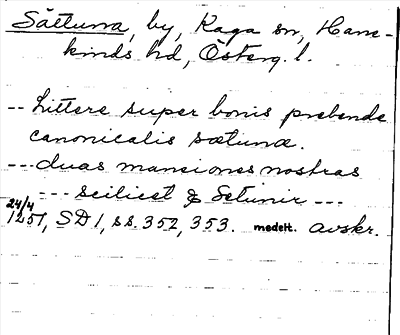 Sättuna, by, Kaga sn, Hane-
kinds hd, Österg. l.
-- Littere super bonis prebende
canonicalis sætunæ.
--- duas mansiones nostras
--- scilicet
24/4
1251, SD 1, ss. 352, 353. medelt. avskr.